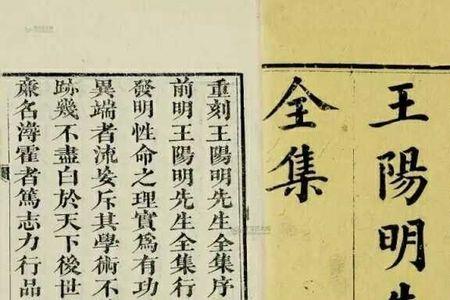 王陽明先
全集
重刻王陽明先生全集序
前明王陽明先生全集行
發明性命之理實為有功
異端者流妄斥其學術不
跡幾不盡白於天下後世
廉名濤霍者篤志力行品